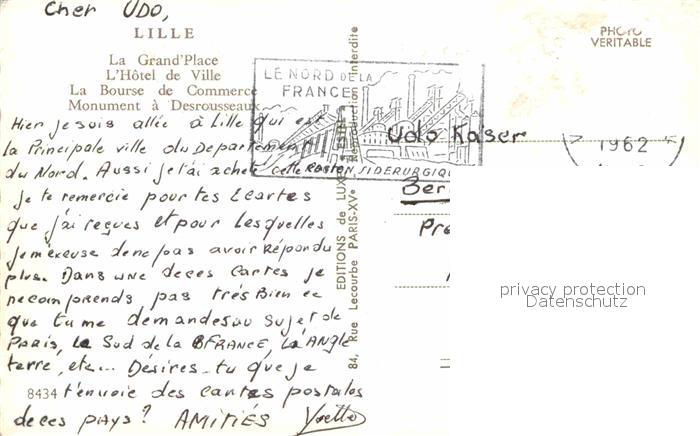 Cher UDO,
LILLE
La Grand'Place
L'Hôtel de Ville
La Bourse de Commerce
Monument à Desrousseaux
Hier je suis allée à Lille qui est
la Principale ville du Departement
du Nord. Aussi je t'ai acheté cette carte
Je te remercie pour tes 2 cartes
que j'ai reçues et pour lesquelles
je m'excuse de ne pas avoir Répondu
plus. Dans une de ces cartes je
ne comprends pas très Bien ce
que tu me demandes au sujet de
Paris, le Sud de la FRANCE, L'ANGLE
terre, etc... Désires-tu que je
t'envoie des cartes postales
de ces pays? AMITIÉS Yvette
8434
LE NORD DE LA
FRANCE
SIDERURGIQUE
EDITIONS de LUXE
84, Rue Lecourbe PARIS-XVe Reproduction interdite
PHOTO
VERITABLE
1962
Udo Kaser
Ber
Pre
privacy protection
Datenschutz